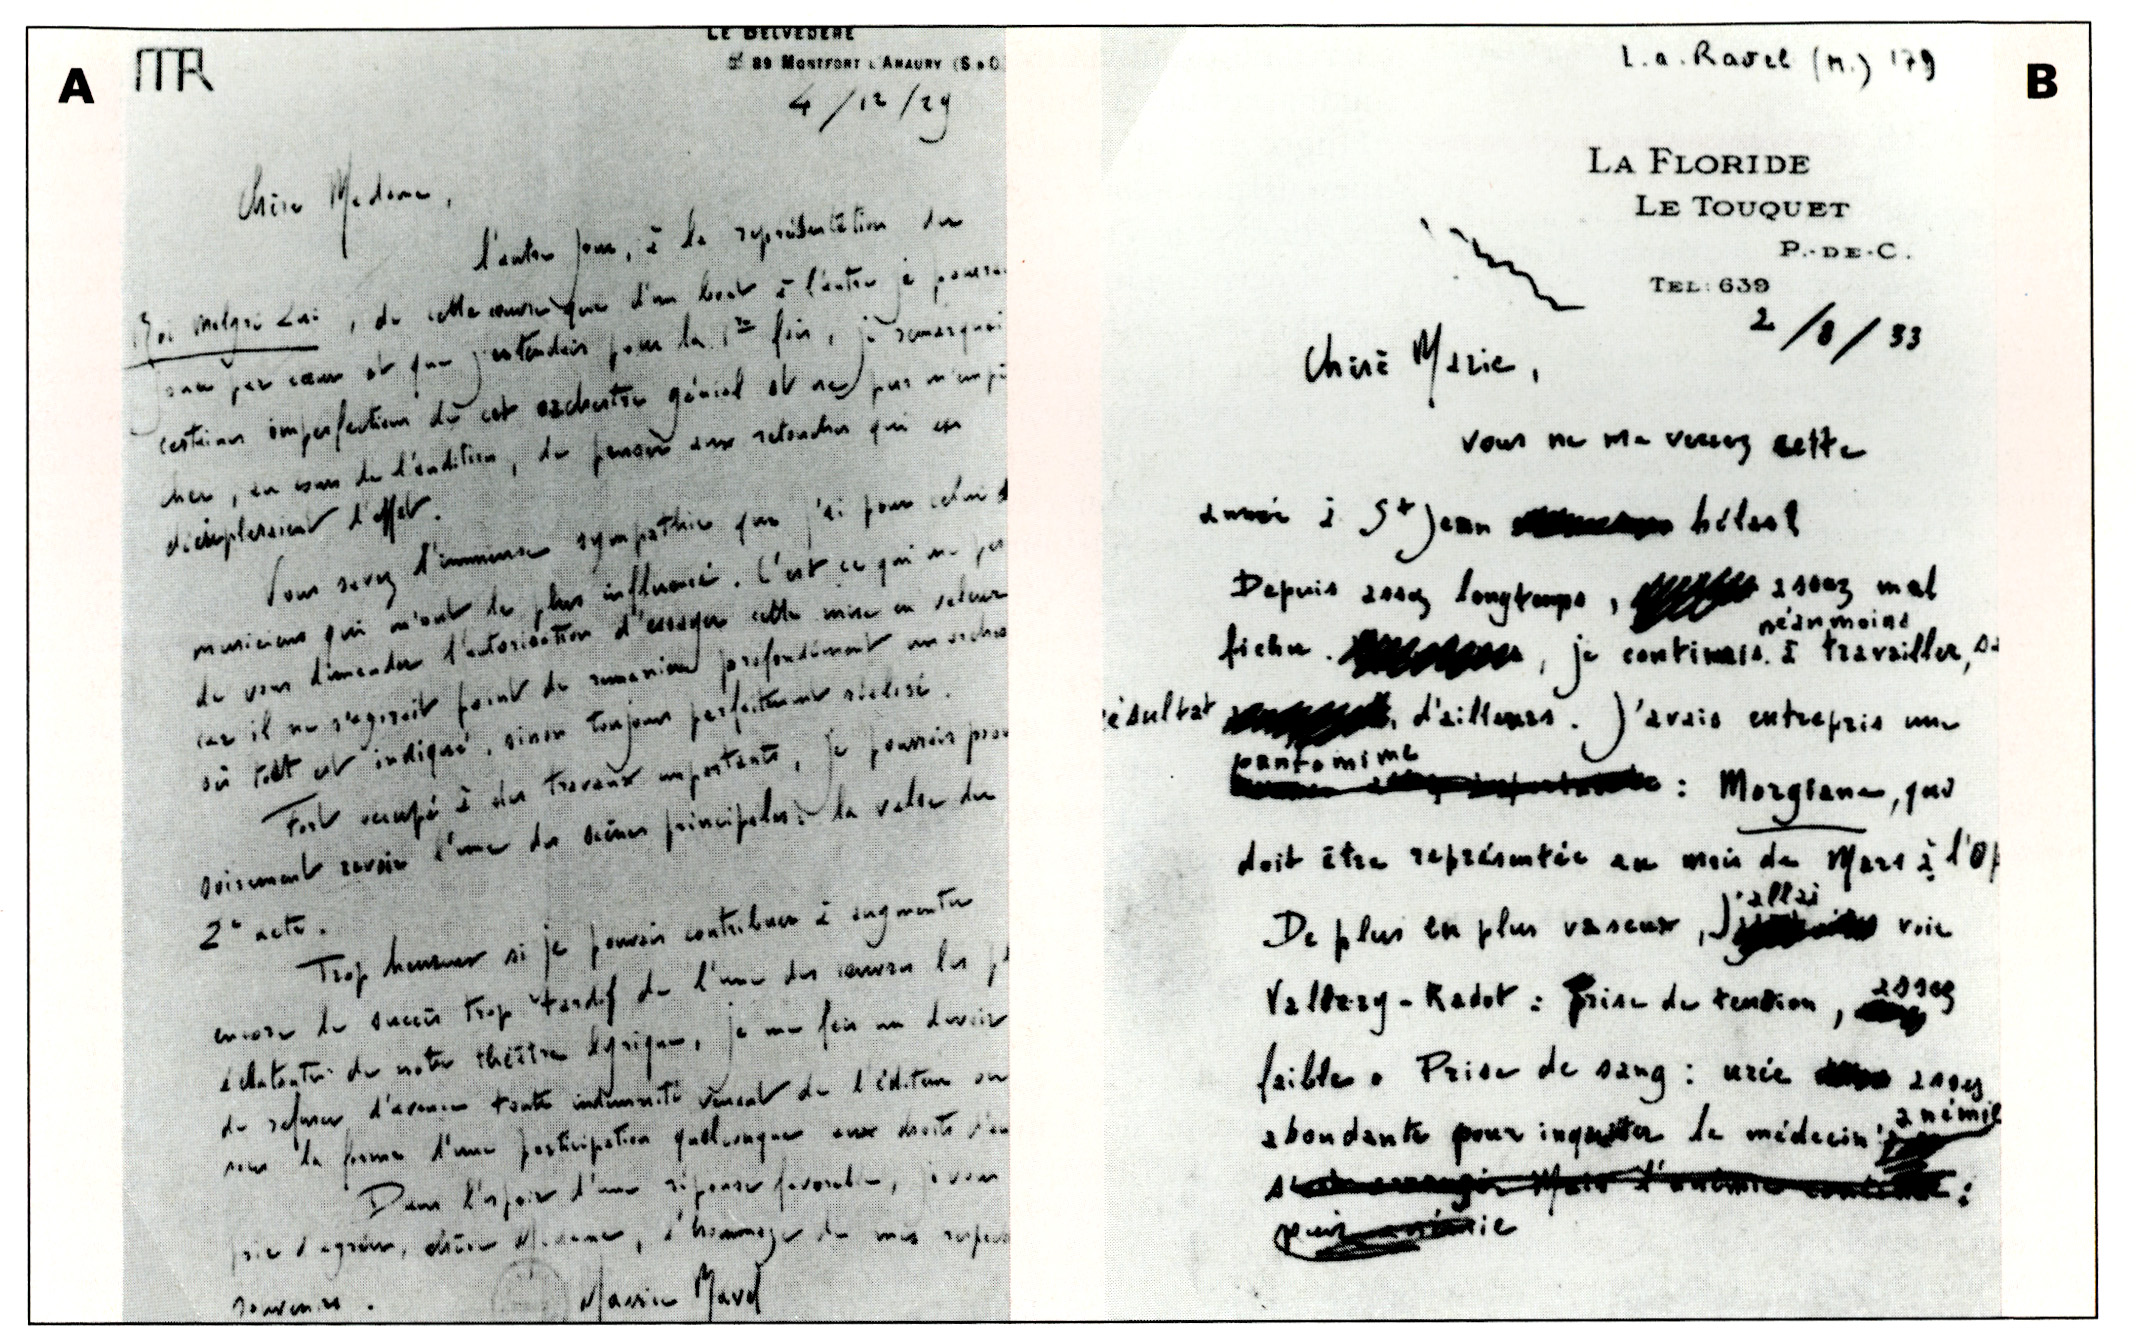 A
MR
LE BELVÉDÈRE
89 MONTFORT L'AMAURY (S & O
4/12/29
Chère Madame,
l'autre jour, à la représentation du
Roi malgré Lui, de cette œuvre que d'un bout à l'autre je
par cœur et que j'entendais pour la 1re fois, je remarquai
certaines imperfections de cet orchestre génial et ne pus m'empê
cher, au cours de l'audition, de penser aux retouches qui en
décupleraient l'effet.
Vous savez l'immense sympathie que j'ai pour celui d
musiciens qui m'ont le plus influencé. C'est ce qui me
de vous demander l'autorisation d'essayer cette mise en valeur
car il ne s'agirait point de remanier profondément un orches
où tout est indiqué, sinon toujours parfaitement réalisé.
Fort occupé à des travaux importants, je pourrais prov
soirement revoir l'une des scènes principales: la valse du
2e acte.
Trop heureux si je pouvais contribuer à augmenter
encore le succès trop tardif de l'une des œuvres les pl
éclatantes de notre théâtre lyrique, je me fais un devoir
de refuser d'avance toute indemnité venant de l'éditeur ou
sous la forme d'une participation quelconque aux droits d'au
Dans l'espoir d'une réponse favorable, je vous
prie d'agréer, chère Madame, l'hommage de mes respec
souvenirs.
Maurice Ravel
B
L.a. Ravel (M.) 179
LA FLORIDE
LE TOUQUET
P.-DE-C.
TEL: 639
2/8/33
Chère Marie,
vous ne me verrez cette
année à St Jean hélas!
Depuis assez longtemps, assez mal
néanmoins
fichu. , je continuais à travailler, sa
résultat d'ailleurs. J'avais entrepris une
pantomime
: Morgiane, qui
doit être représentée au mois de Mars à l'Op
j'allai
De plus en plus vaseux, voir
Vallery-Radot : Prise de tension, assez
faible. Prise de sang : urée assez
abondante pour inquiéter le médecin; anémie
s'est Mais l'anémie :
puis anémie